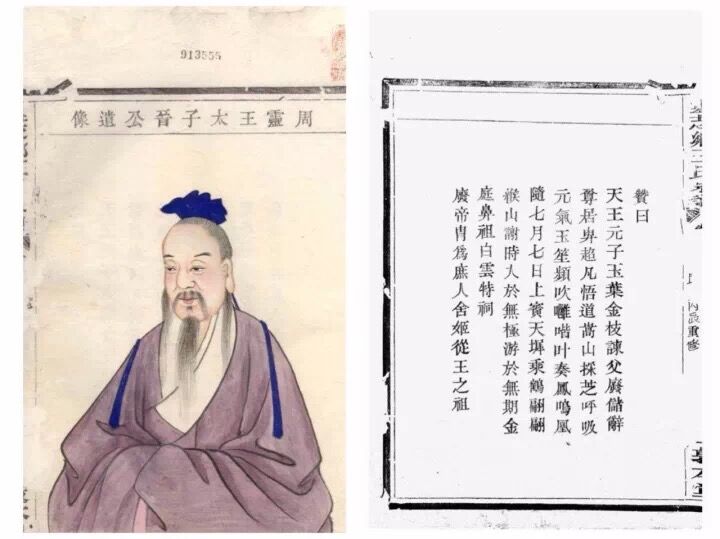 913555
周靈王太子晉公遺像
贊曰
天王元子玉葉金枝諫父廢儲辭
尊居卑超凡悟道嵩山採芝呼吸
元氣玉笙頻吹雝喈叶奏鳳鳴凰、
隨七月七日上賓天墀乘鶴翩翩
緱山謝時人於無極游於無期金
庭鼻祖白雲特祠
廢帝冑為庶人舍姬從王之祖
丙辰重修